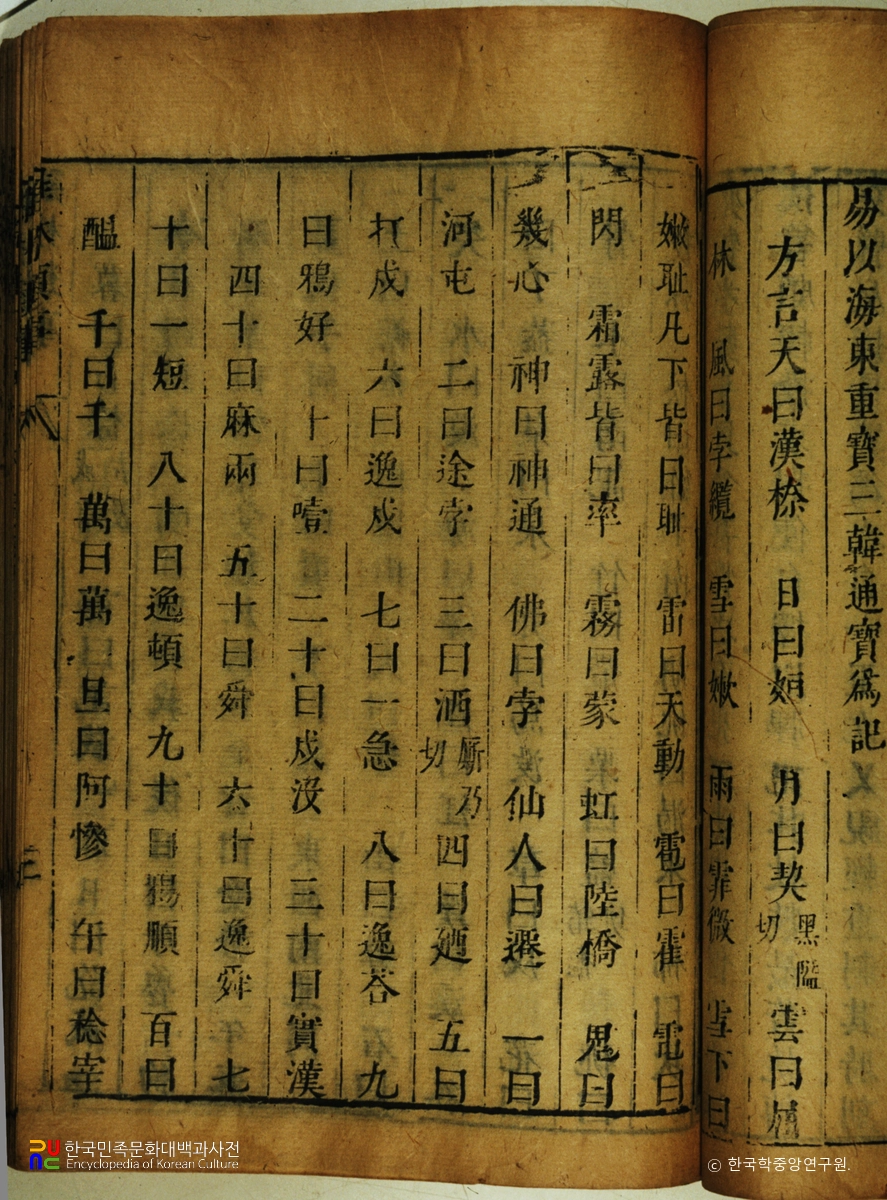 易以海東重寶三韓通寶爲記
方言天曰漢捺 日曰姮 月曰契黑隘切 雲曰屈
林 風曰孛纜 雪曰嫩 雨曰霏微 雪下曰
嫩耻凡下皆曰耻 雷曰天動 雹曰霍 電曰
閃 霜露皆曰率 霧曰蒙 虹曰陸橋 鬼曰
幾心 神曰神通 佛曰孛 仙人曰遷 一曰
河屯 二曰途孛 三曰洒厮乃切 四曰廼 五曰
打戍 六曰逸戍 七曰一急 八曰逸荅 九
曰鴉好 十曰噎 二十曰戍沒 三十曰實漢
四十曰麻兩 五十曰舜 六十曰逸舜 七
十曰一短 八十曰逸頓 九十曰鴉順 百曰
醖 千曰千 萬曰萬 旦曰阿慘 午曰稔宰
한국민족문화대백과사전
Encyclopedia of Korean Culture
© 한국학중앙연구원.